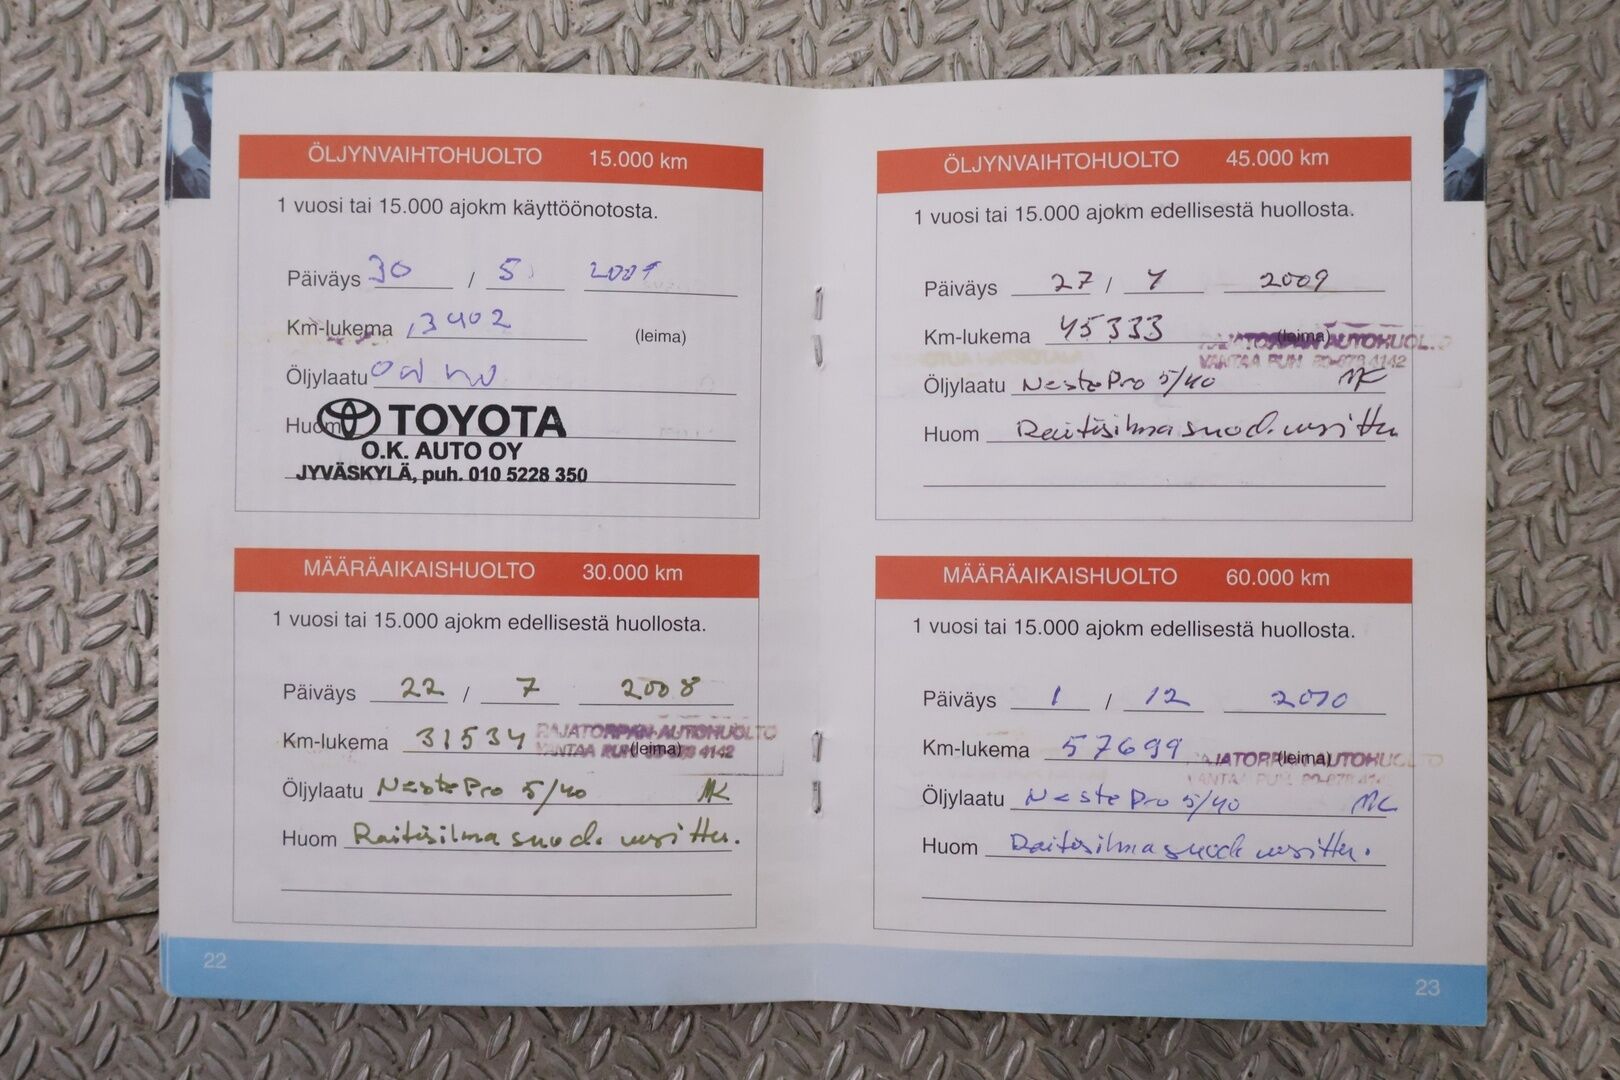 ÖLJYNVAIHTOHUOLTO 15.000 km
1 vuosi tai 15.000 ajokm käyttöönotosta.
Päiväys 30 / 5
Km-lukema
(leima)
Öljylaatu
Huom
TOYOTA
O.K. AUTO OY
JYVÄSKYLÄ, puh. 010 5228 350
MÄÄRÄAIKAISHUOLTO 30.000 km
1 vuosi tai 15.000 ajokm edellisestä huollosta.
Päiväys 22 / 7 2008
Km-lukema 31534 (leima)
RAJATORPAN AUTOHUOLTO
VANTAA PUH 4142
Öljylaatu Neste Pro 5/40 MK
Huom Raitisilmasuod. uusittu.
22
ÖLJYNVAIHTOHUOLTO 45.000 km
1 vuosi tai 15.000 ajokm edellisestä huollosta.
Päiväys 27 / 2009
Km-lukema 45333 (leima)
RAJATORPAN AUTOHUOLTO
VANTAA PUH 4142
Öljylaatu Neste Pro 5/40 MK
Huom Raitisilmasuod. uusittu
MÄÄRÄAIKAISHUOLTO 60.000 km
1 vuosi tai 15.000 ajokm edellisestä huollosta.
Päiväys 1 / 12 2010
Km-lukema 57699 (leima)
AUTOHUOLTO
Öljylaatu Neste Pro 5/40 MK
Huom Raitisilmasuod uusittu.
23